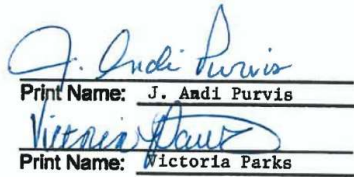 J. Andi Purvis
Print Name: J. Andi Purvis
Victoria Parks
Print Name: Victoria Parks